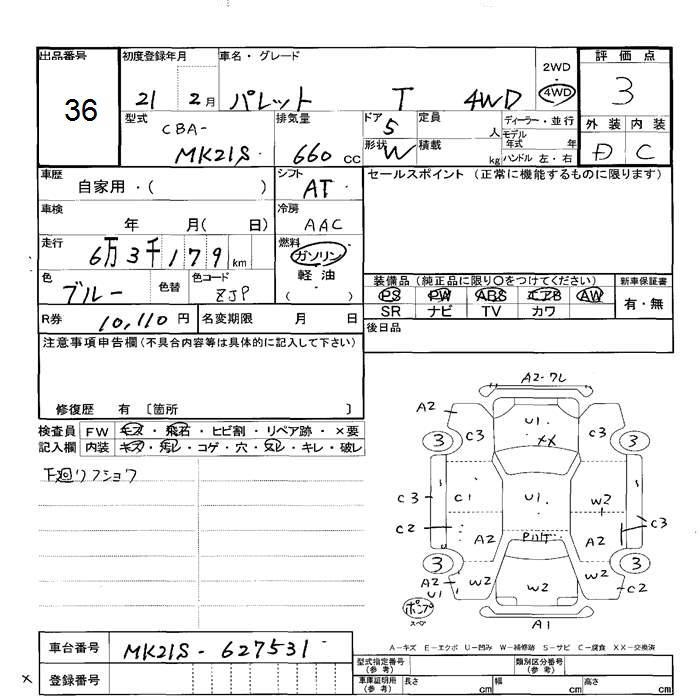 出品番号 初度登録年月 車名・グレード 評価点
36
21 2月 パレット T 4WD
2WD
4WD
3
型式 CBA-
MK21S
排気量
660 cc
ドア 5
定員 人
ディーラー・並行
モデル年式 年
形状 W
積載 kg
ハンドル 左・右
外装 内装
D C
車歴
自家用・( )
シフト
AT
セールスポイント (正常に機能するものに限ります)
車検
年 月( 日)
冷房
AAC
走行
6万3千179km
燃料
ガソリン
軽油
( )
色
ブルー
色替
色コード
ZJP
装備品 (純正品に限り〇をつけてください)
新車保証書
PS PW ABS エアB AW
有・無
SR ナビ TV カワ
R券 10,110 円
名変期限 月 日
後日品
注意事項申告欄 (不具合内容等は具体的に記入して下さい)
修復歴 有 〔箇所 〕
検査員 FW キズ・飛石・ヒビ割・リペア跡・×要
記入欄 内装 キズ・汚レ・コゲ・穴・スレ・キレ・破レ
下廻リフショク
A2-フレ
A2
U1
C3
XX
C3
3
3
C3
C1
U1
W2
C2
A2
PハT
A2
C3
3
3
A2
U1
W2
W2
W2
C2
ポンプ
スペ
A1
A-キズ E-エクボ U-凹み W-補修跡 S-サビ C-腐食 XX-交換済
車台番号 MK21S-627531
× 登録番号
型式指定番号(参考) 類別区分番号(参考)
車庫証明用(参考) 長さ cm 幅 cm 高さ cm